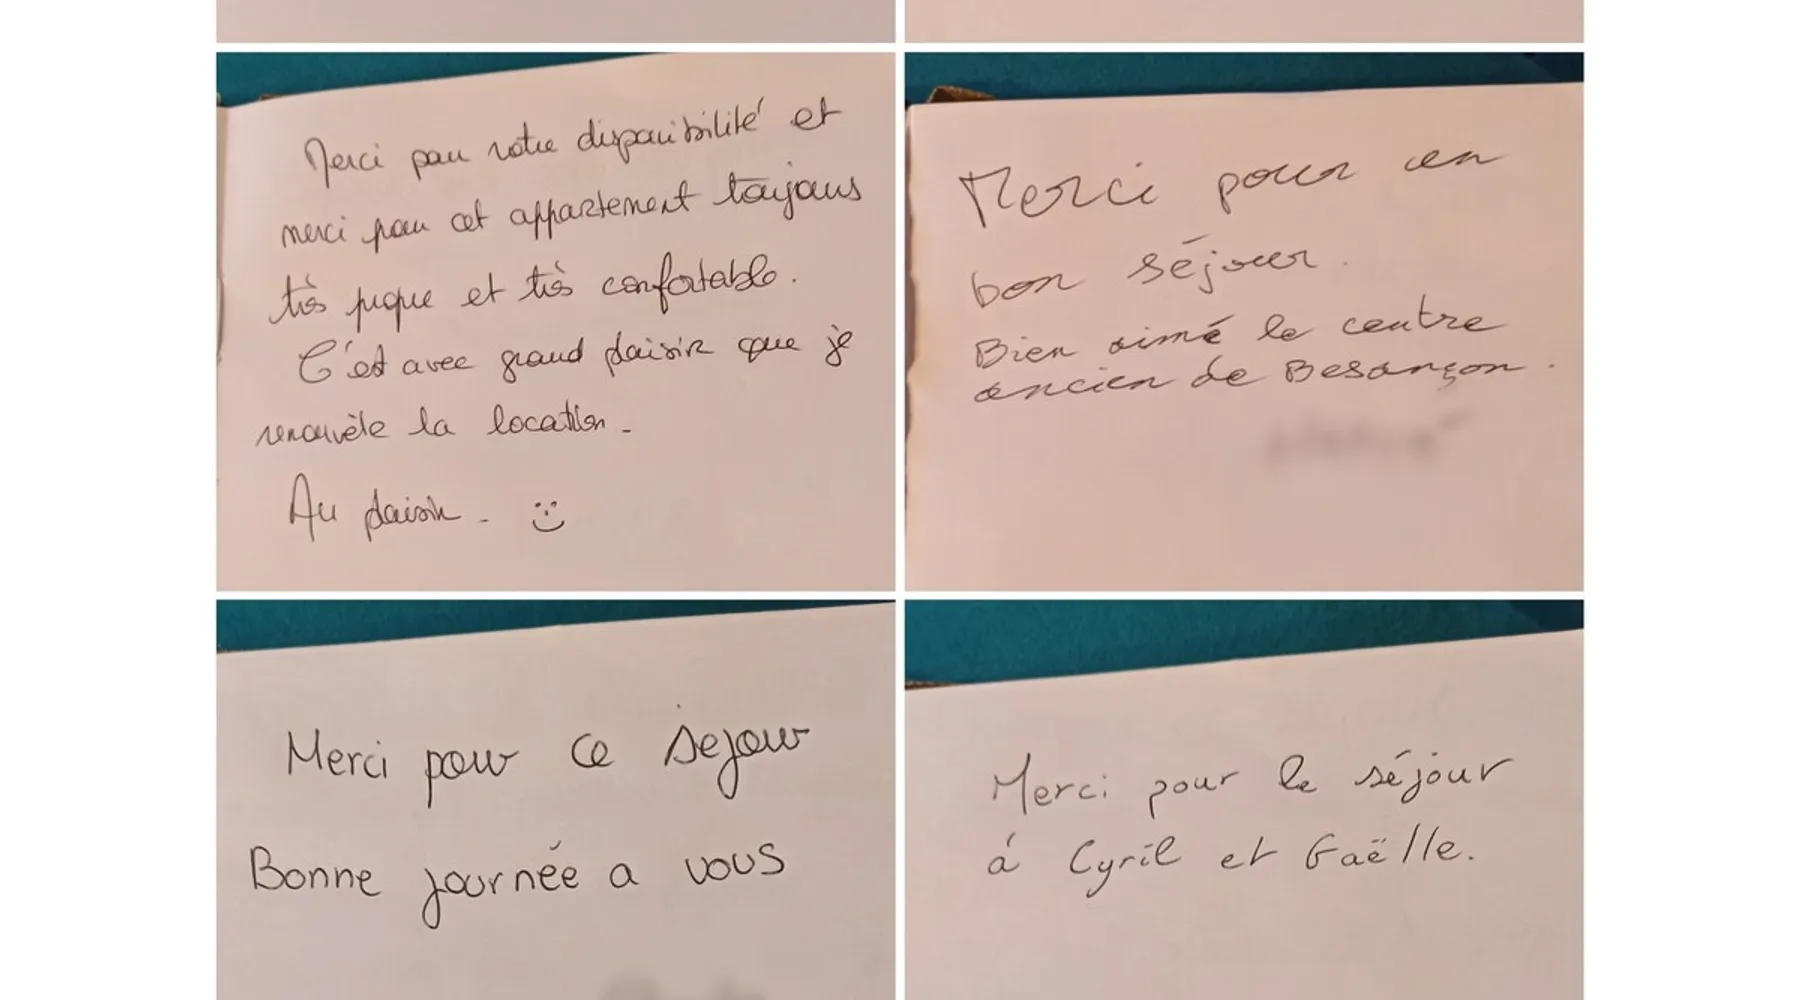 Merci pour votre disponibilité et
merci pour cet appartement toujours
très propre et très confortable.
C'est avec grand plaisir que je
renouvèle la location.
Au plaisir. :)
Merci pour un
bon séjour.
Bien aimé le centre
ancien de Besançon.
Merci pour ce sejour
Bonne journée a vous
Merci pour le séjour
à Cyril et Gaëlle.